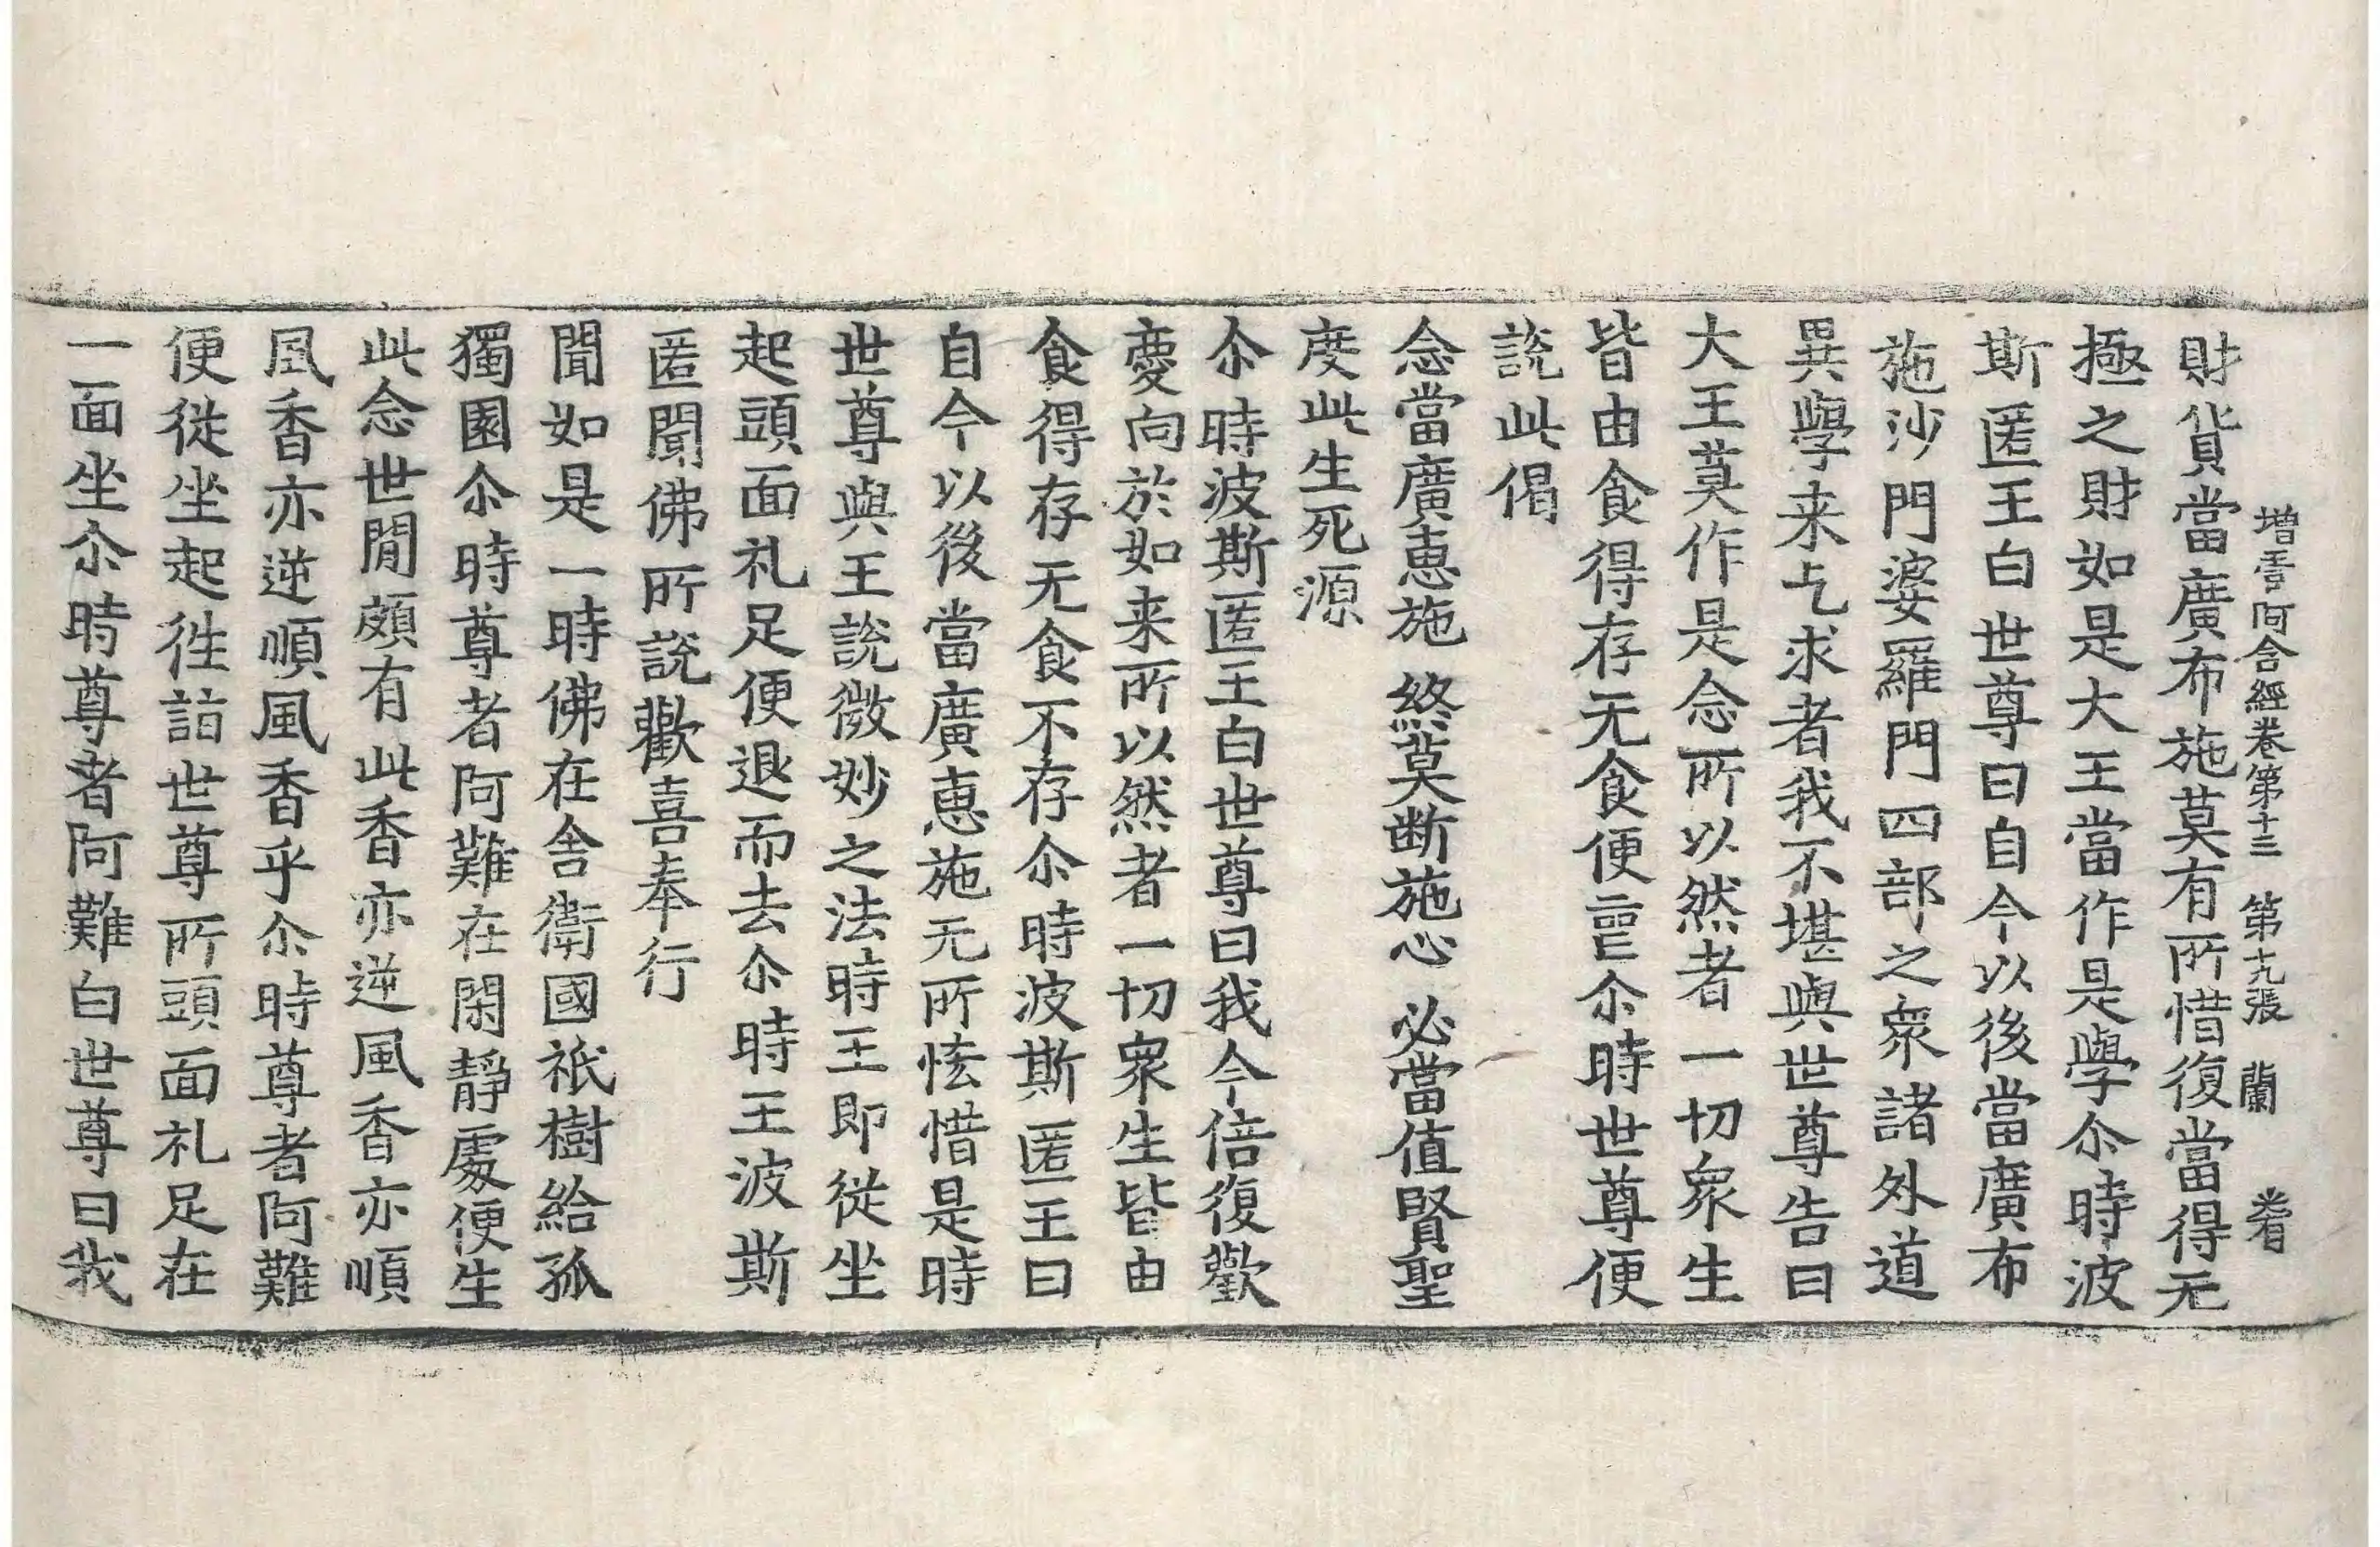 增壹阿含經卷第十三 第十九張 蘭
財貨當廣布施莫有所惜復當得无
極之財如是大王當作是學尒時波
斯匿王白世尊曰自今以後當廣布
施沙門婆羅門四部之衆諸外道
異學来乞求者我不堪與世尊告曰
大王莫作是念所以然者一切衆生
皆由食得存无食便喪尒時世尊便
說此偈
念當廣惠施 終莫断施心 必當值賢聖
度此生死源
尒時波斯匿王白世尊曰我今倍復歡
慶向於如来所以然者一切衆生皆由
食得存无食不存尒時波斯匿王曰
自今以後當廣惠施无所悋惜是時
世尊與王說微妙之法時王即從坐
起頭面礼足便退而去尒時王波斯
匿聞佛所說歡喜奉行
聞如是一時佛在舍衛國祇樹給孤
獨園尒時尊者阿難在閑靜處便生
此念世閒頗有此香亦逆風香亦順
風香亦逆順風香乎尒時尊者阿難
便從坐起徃詣世尊所頭面礼足在
一面坐尒時尊者阿難白世尊曰我